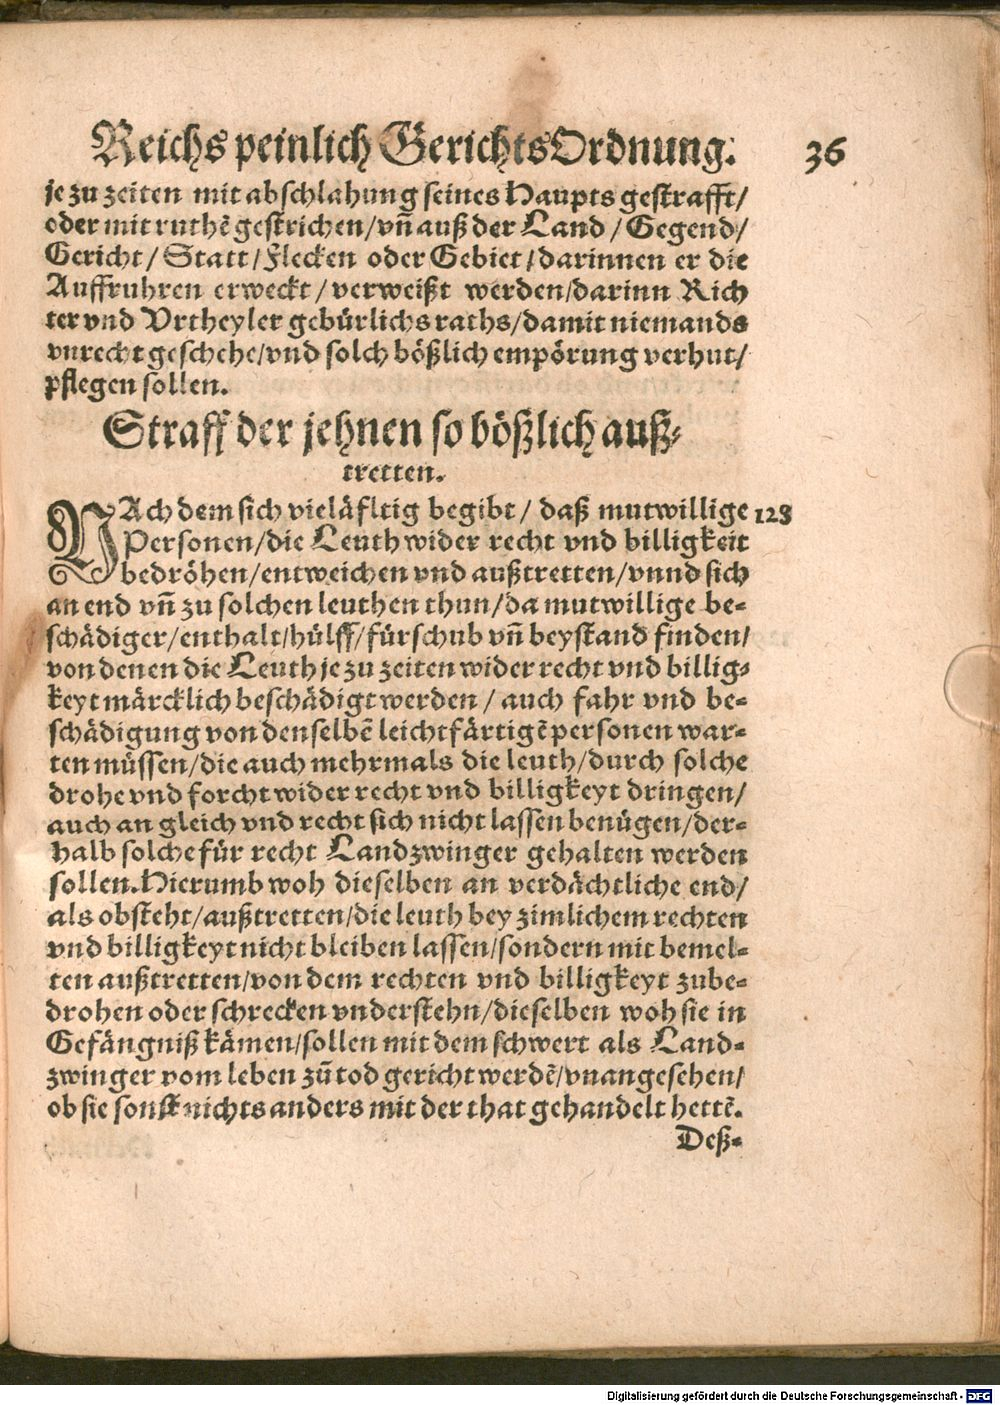 Reichs peinlich GerichtsOrdnung. 36
je zu zeiten mit abschlahung seines Haupts gestrafft/
oder mit ruthẽ gestrichen/vñ auß der Land/Gegend/
Gericht/Statt/Flecken oder Gebiet/darinnen er die
Auffruhren erweckt/verweißt werden/darinn Rich
ter vnd Vrtheyler gebürlichs raths/damit niemands
vnrecht geschehe/vnd solch bößlich empörung verhut/
pflegen sollen.
Straff der jehnen so bößlich auß-
tretten.
NAch dem sich vieläfltig begibt/ daß mutwillige 123
Personen/die Leuth wider recht vnd billigkeit
bedröhen/entweichen vnd außtretten/vnnd sich
an end vñ zu solchen leuthen thun/da mutwillige be-
schädiger/enthalt/hülff/fürschub vñ beystand finden/
von denen die Leuth je zu zeiten wider recht vnd billig-
keyt märcklich beschädigt werden/ auch fahr vnd be-
schädigung von denselbẽ leichtfärtigẽ personen war-
ten müssen/die auch mehrmals die leuth/durch solche
drohe vnd forcht wider recht vnd billigkeyt dringen/
auch an gleich vnd recht sich nicht lassen benügen/der-
halb solche für recht Landzwinger gehalten werden
sollen. Hierumb woh dieselben an verdächtliche end/
als obsteht/außtretten/die leuth bey zimlichem rechten
vnd billigkeyt nicht bleiben lassen/sondern mit bemel-
ten außtretten/von dem rechten vnd billigkeyt zube-
drohen oder schrecken vnderstehn/dieselben woh sie in
Gefängniß kämen/sollen mit dem schwert als Land-
zwinger vom leben zů tod gericht werdẽ/vnangesehen/
ob sie sonst nichts anders mit der that gehandelt hettẽ.
Deß-
Digitalisierung gefördert durch die Deutsche Forschungsgemeinschaft - DFG